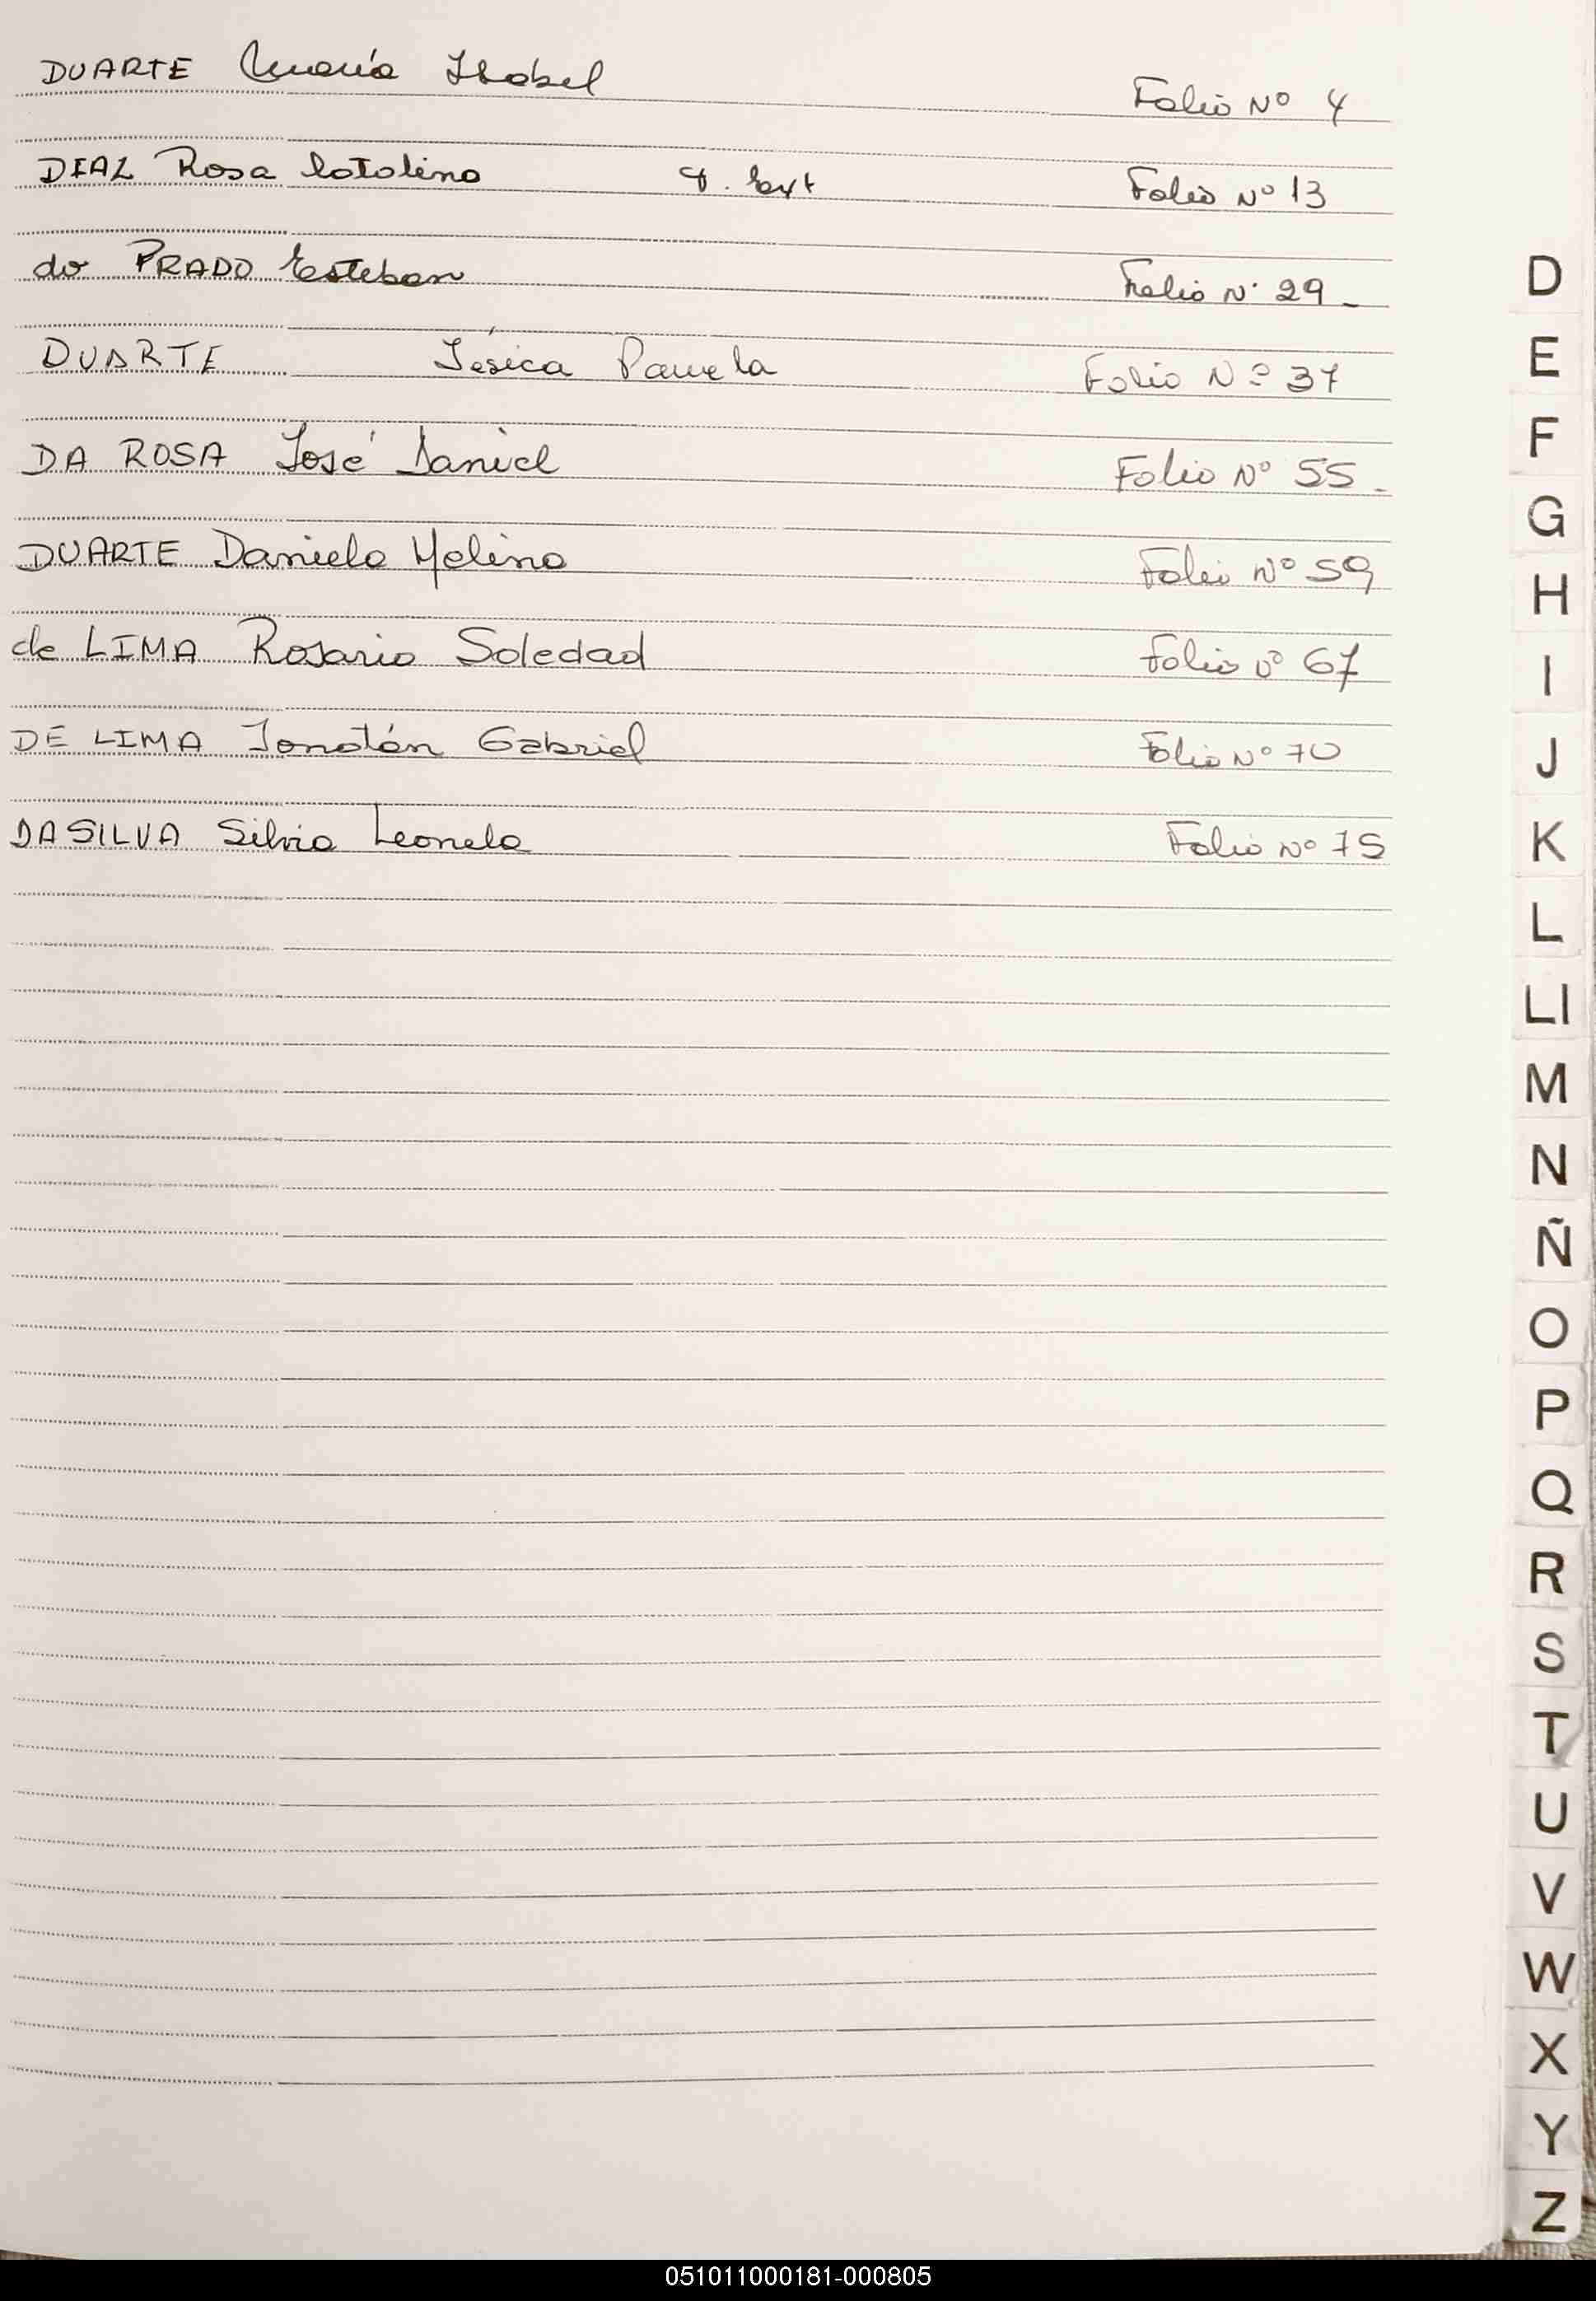 DUARTE María Isabel Folio Nº 4
DIAZ Rosa Catalina Folio Nº 13
do PRADO Esteban Folio Nº 29 -
DUARTE Jésica Pamela Folio Nº 37
DA ROSA José Daniel Folio Nº 55 -
DUARTE Daniela Melina Folio Nº 59
de LIMA Rosario Soledad Folio Nº 67
DE LIMA Jonatán Gabriel Folio Nº 70
DA SILVA Silvia Leonela Folio Nº 75
D
E
F
G
H
I
J
K
L
Ll
M
N
Ñ
O
P
Q
R
S
T
U
V
W
X
Y
Z
051011000181-000805